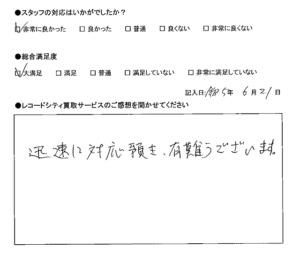 ●スタッフの対応はいかがでしたか?
☑非常に良かった □良かった □普通 □良くない □非常に良くない
●総合満足度
☑大満足 □満足 □普通 □満足していない □非常に満足していない
記入日 令和5年 6月21日
●レコードシティ買取サービスのご感想を聞かせてください
迅速に対応頂き、有難うございます。